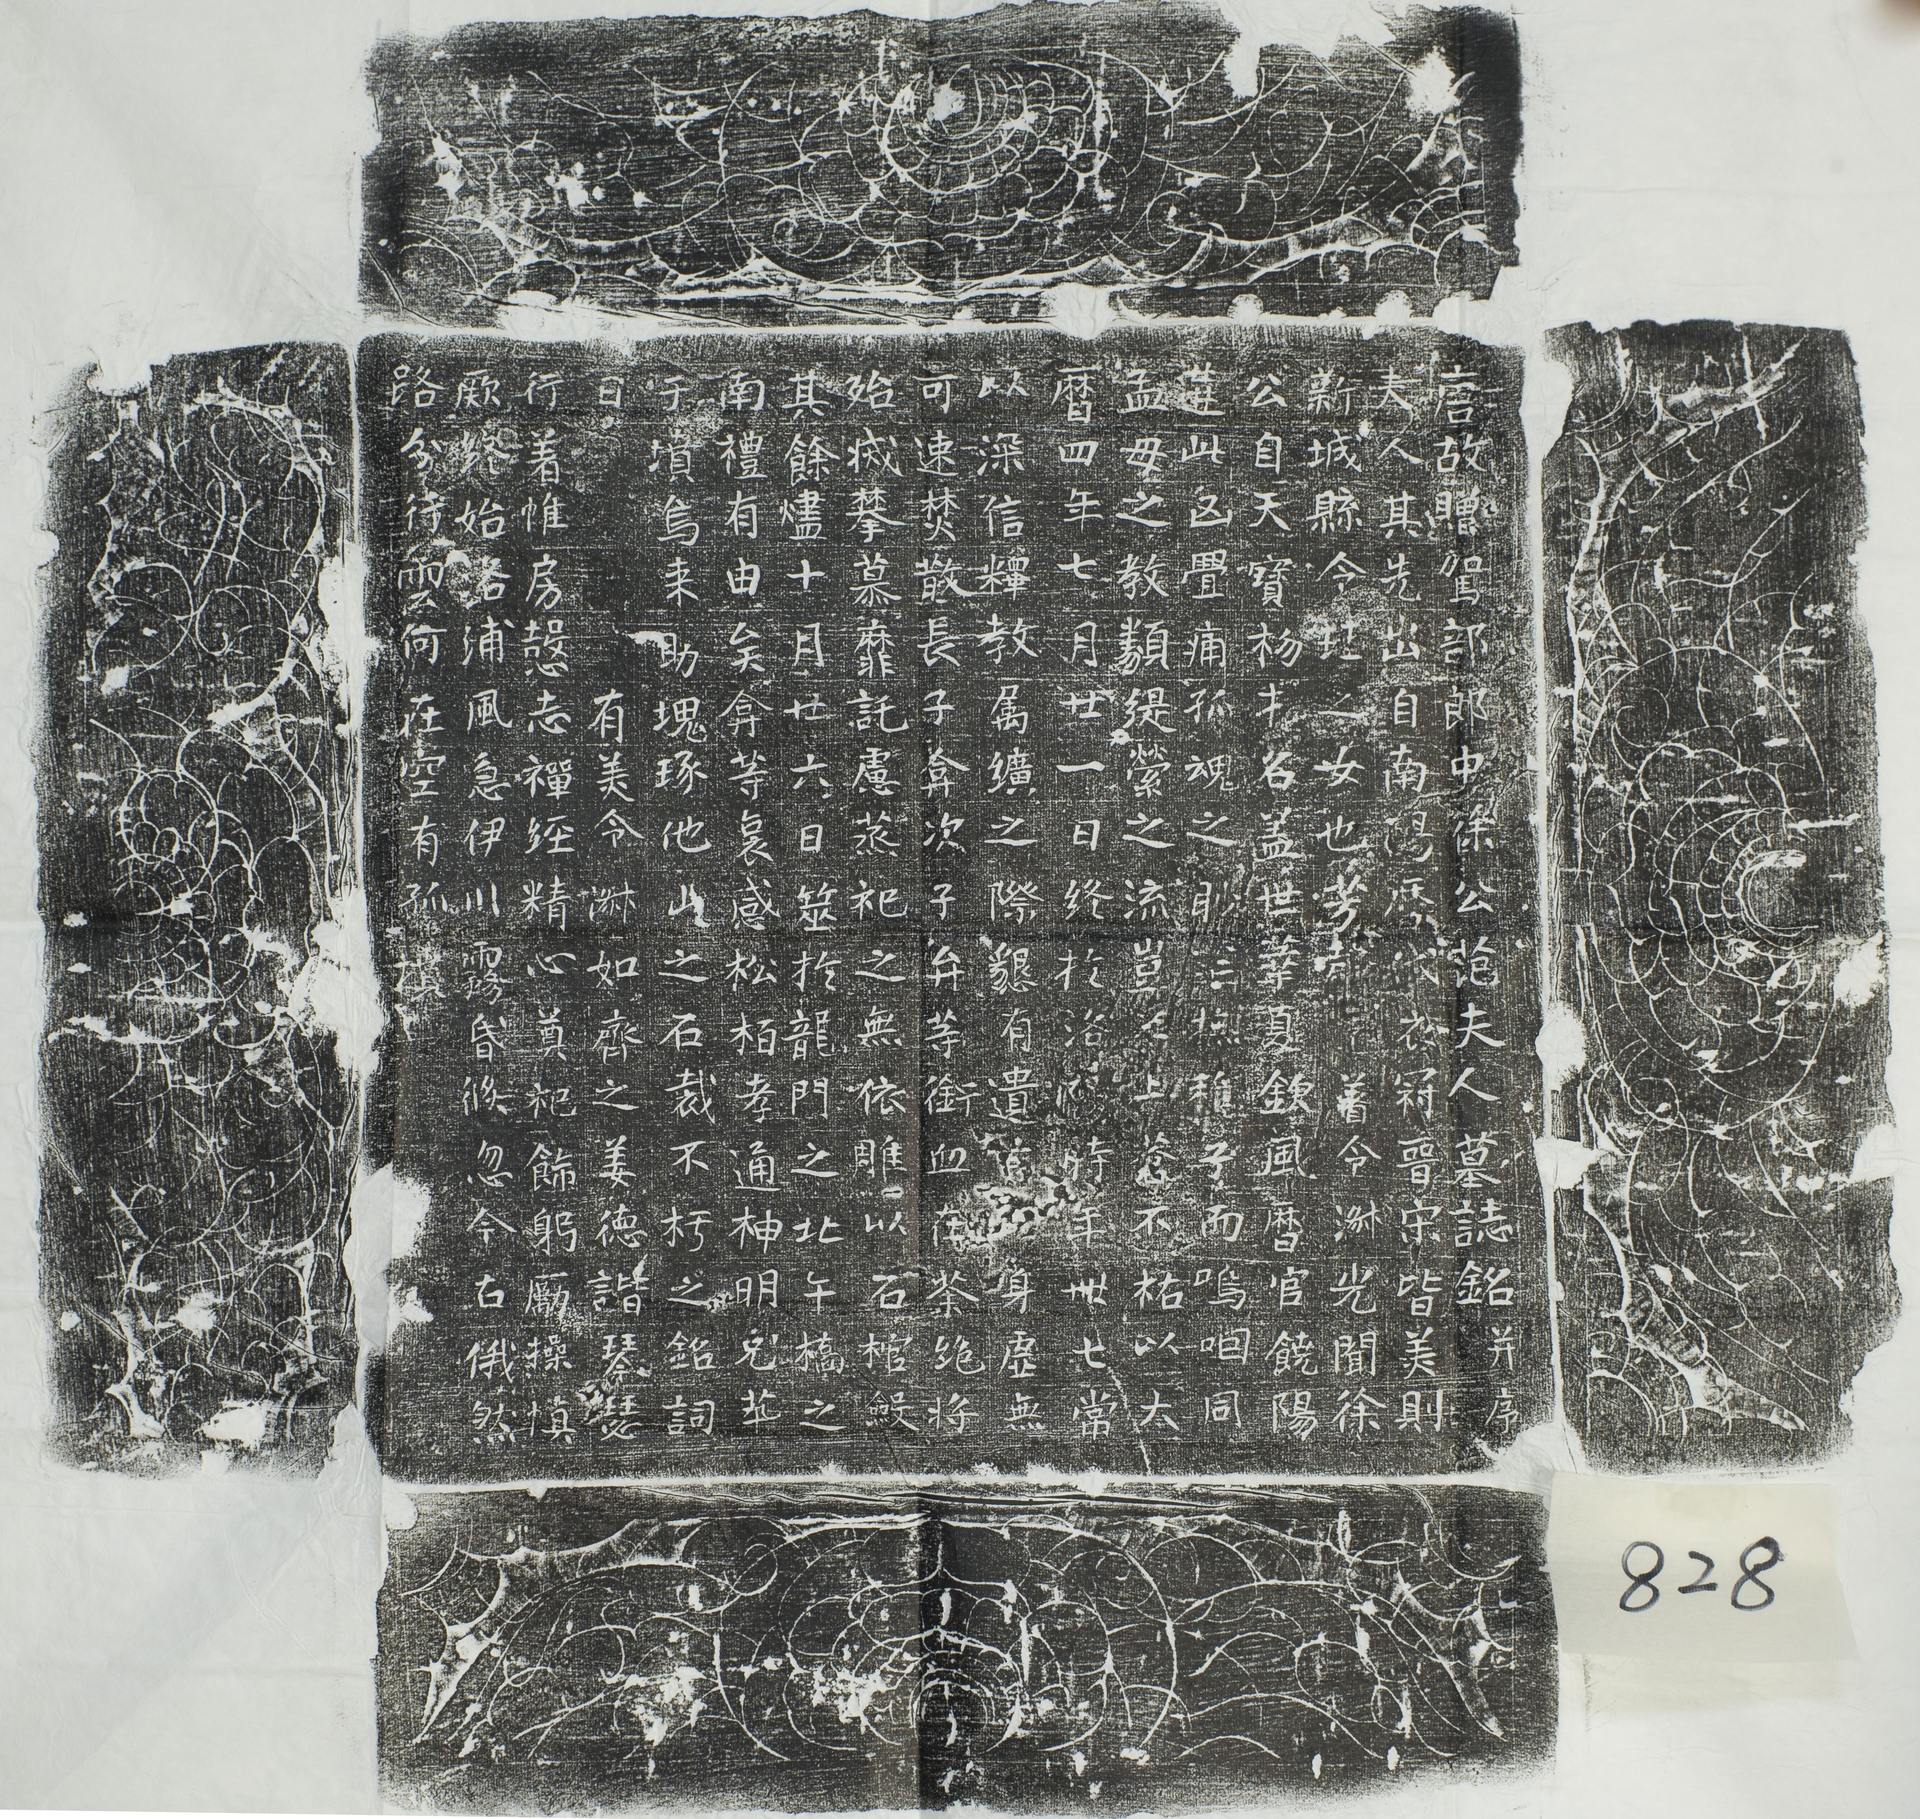 唐故贈駕部郎中徐公范夫人墓誌銘并序
夫人其先出自南陽歷代衣冠晉宋皆美則
新城縣令 之女也考 著令淋光聞徐
公自天寶杨才名盖世華夏欽風曆官饒陽
遘此凶疊痛孤魂之 撫稚子而嗚咽同
孟母之教類緹縈之流豈 上蒼不祐以大
曆四年七月廿一日終於洛 時年卌七常
以深信釋教属纊之際懇有遺言身虛無
可速焚散長子弇次子弁等銜血在荼絶將
始成攀慕靡託慮蒸祀之無依雕以石棺緞
其餘燼十月廿六日窆於龍門之北午橋之
南禮有由矣弇等哀感松栢孝通神明兆茔
于墳烏来助塊琢他山之石裁不朽之銘詞
曰 有美令淋如齊之姜德諧琴瑟
行着帷房慤志禪經精心奠祀飾躬厲操慎
厥終始洛浦風急伊川霧昏倐忽今古俄然
路分行雲何在空有孤墳
828